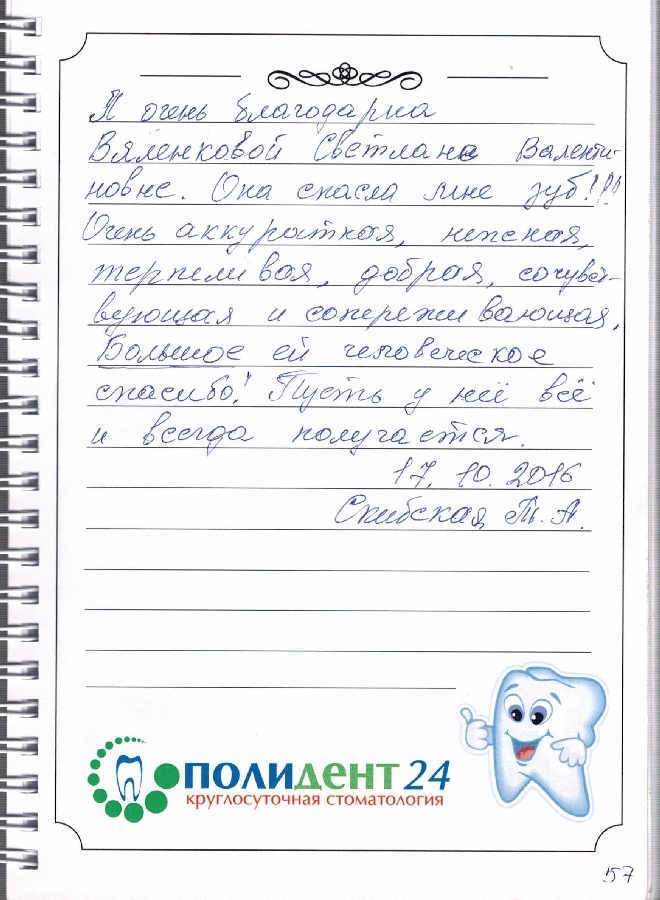 Я очень благодарна
Вяленковой Светлане Валенти-
новне. Она спасла мне зуб!!!
Очень аккуратная, нежная,
терпеливая, добрая, сочувст-
вующая и сопереживающая,
Большое ей человеческое
спасибо! Пусть у неё всё
и всегда получается.
17.10.2016
Скибская Т.А.
ПОЛИДЕНТ 24
круглосуточная стоматология
57